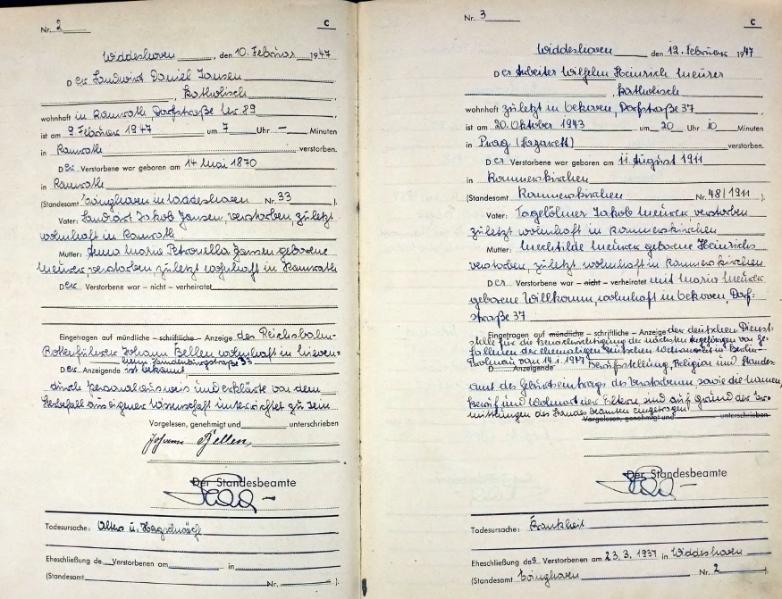 Nr. 2
C
Widdeshoven, den 10. Februar 1947
Der Landwirt Daniel Jansen
, katholisch
wohnhaft in Ramrath, Dorfstraße Nr 89
ist am 9 Februar 1947 um 7 Uhr — Minuten
in Ramrath verstorben.
Der Verstorbene war geboren am 14 Mai 1870
in Ramrath
(Standesamt in Widdeshoven Nr. 33 ).
Vater: Landwirt Jakob Jansen, verstorben, zuletzt
wohnhaft in Ramrath
Mutter: Anna Maria Petronella Jansen geborene
Meurer, verstorben, zuletzt wohnhaft in Ramrath
Der Verstorbene war – nicht – verheiratet
Eingetragen auf mündliche – schriftliche – Anzeige des Reichsbahn-
Rottenführers Johann Bellen wohnhaft in
Der Anzeigende ist bekannt
durch Personalausweis und erklärte von dem
Sterbefall aus eigener Wissenschaft unterrichtet zu sein
Vorgelesen, genehmigt und unterschrieben
Johann Bellen
Der Standesbeamte
Todesursache: Alter u. Herzschwäche
Eheschließung de Verstorbenen am in
(Standesamt Nr. ).
Nr. 3
C
Widdeshoven den 12. Februar 1947
Der Arbeiter Wilhelm Heinrich Meurer
, katholisch
wohnhaft zuletzt in Oekoven, Dorfstraße 37
ist am 20. Oktober 1943 um 20 Uhr 10 Minuten
in Prag (Lazarett) verstorben.
Der Verstorbene war geboren am 11. August 1911
in Rommerskirchen
(Standesamt Rommerskirchen Nr. 48/1911 ).
Vater: Tagelöhner Jakob Meurer verstorben
zuletzt wohnhaft in Rommerskirchen
Mutter: Mechtilde Meurer geborene Heinrichs
verstorben, zuletzt wohnhaft in Rommerskirchen
Der Verstorbene war – nicht – verheiratet mit Maria Meurer
geborene Willkomm, wohnhaft in Oekoven, Dorf-
straße 37
Eingetragen auf mündliche – schriftliche – Anzeige der deutschen Dienst-
stelle für die Benachrichtigung der nächsten Angehörigen von Ge-
fallenen der ehemaligen deutschen Wehrmacht in Berlin-
vom 1947 D Anzeigende Berufsstellung, Religion und Standes-
amt des Geburtseintrags des Verstorbenen, sowie die Namen,
Beruf und Wohnort der Eltern sind auf Grund der Er-
mittlungen des Standesbeamten eingetragen
Vorgelesen, genehmigt und unterschrieben
Der Standesbeamte
Todesursache: Krankheit
Eheschließung des Verstorbenen am 23.3.1937 in Widdeshoven
(Standesamt Nr. 2 ).